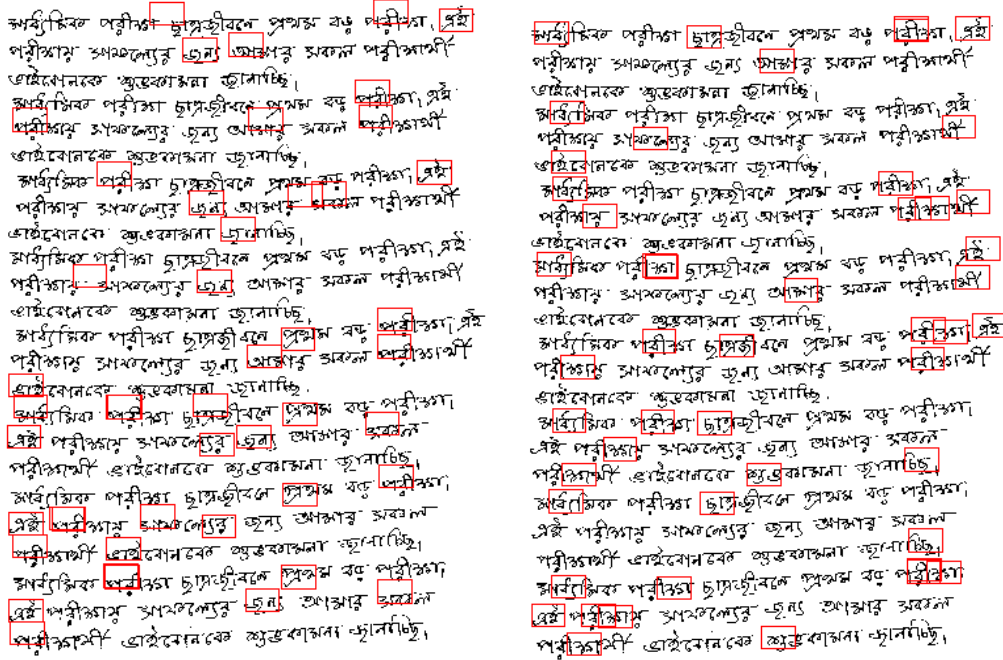 মাধ্যমিক পরীক্ষা ছাত্রজীবনে প্রথম বড় পরীক্ষা, এই
পরীক্ষায় সাফল্যের জন্য আমার সকল পরীক্ষার্থী
ভাইবোনকে শুভকামনা জানাচ্ছি,
মাধ্যমিক পরীক্ষা ছাত্রজীবনে প্রথম বড় পরীক্ষা, এই
পরীক্ষায় সাফল্যের জন্য আমার সকল পরীক্ষার্থী
ভাইবোনকে শুভকামনা জানাচ্ছি,
মাধ্যমিক পরীক্ষা ছাত্রজীবনে প্রথম বড় পরীক্ষা, এই
পরীক্ষায় সাফল্যের জন্য আমার সকল পরীক্ষার্থী
ভাইবোনকে শুভকামনা জানাচ্ছি,
মাধ্যমিক পরীক্ষা ছাত্রজীবনে প্রথম বড় পরীক্ষা, এই
পরীক্ষায় সাফল্যের জন্য আমার সকল পরীক্ষার্থী
ভাইবোনকে শুভকামনা জানাচ্ছি,
মাধ্যমিক পরীক্ষা ছাত্রজীবনে প্রথম বড় পরীক্ষা, এই
পরীক্ষায় সাফল্যের জন্য আমার সকল পরীক্ষার্থী
ভাইবোনকে শুভকামনা জানাচ্ছি.
মাধ্যমিক পরীক্ষা ছাত্রজীবনে প্রথম বড় পরীক্ষা,
এই পরীক্ষায় সাফল্যের জন্য আমার সকল
পরীক্ষার্থী ভাইবোনকে শুভকামনা জানাচ্ছি,
মাধ্যমিক পরীক্ষা ছাত্রজীবনে প্রথম বড় পরীক্ষা,
এই পরীক্ষায় সাফল্যের জন্য আমার সকল
পরীক্ষার্থী ভাইবোনকে শুভকামনা জানাচ্ছি,
মাধ্যমিক পরীক্ষা ছাত্রজীবনে প্রথম বড় পরীক্ষা,
এই পরীক্ষায় সাফল্যের জন্য আমার সকল
পরীক্ষার্থী ভাইবোনকে শুভকামনা জানাচ্ছি,
মাধ্যমিক পরীক্ষা ছাত্রজীবনে প্রথম বড় পরীক্ষা, এই
পরীক্ষায় সাফল্যের জন্য আমার সকল পরীক্ষার্থী
ভাইবোনকে শুভকামনা জানাচ্ছি,
মাধ্যমিক পরীক্ষা ছাত্রজীবনে প্রথম বড় পরীক্ষা, এই
পরীক্ষায় সাফল্যের জন্য আমার সকল পরীক্ষার্থী
ভাইবোনকে শুভকামনা জানাচ্ছি,
মাধ্যমিক পরীক্ষা ছাত্রজীবনে প্রথম বড় পরীক্ষা, এই
পরীক্ষায় সাফল্যের জন্য আমার সকল পরীক্ষার্থী
ভাইবোনকে শুভকামনা জানাচ্ছি,
মাধ্যমিক পরীক্ষা ছাত্রজীবনে প্রথম বড় পরীক্ষা, এই
পরীক্ষায় সাফল্যের জন্য আমার সকল পরীক্ষার্থী
ভাইবোনকে শুভকামনা জানাচ্ছি,
মাধ্যমিক পরীক্ষা ছাত্রজীবনে প্রথম বড় পরীক্ষা, এই
পরীক্ষায় সাফল্যের জন্য আমার সকল পরীক্ষার্থী
ভাইবোনকে শুভকামনা জানাচ্ছি.
মাধ্যমিক পরীক্ষা ছাত্রজীবনে প্রথম বড় পরীক্ষা,
এই পরীক্ষায় সাফল্যের জন্য আমার সকল
পরীক্ষার্থী ভাইবোনকে শুভকামনা জানাচ্ছি,
মাধ্যমিক পরীক্ষা ছাত্রজীবনে প্রথম বড় পরীক্ষা,
এই পরীক্ষায় সাফল্যের জন্য আমার সকল
পরীক্ষার্থী ভাইবোনকে শুভকামনা জানাচ্ছি,
মাধ্যমিক পরীক্ষা ছাত্রজীবনে প্রথম বড় পরীক্ষা,
এই পরীক্ষায় সাফল্যের জন্য আমার সকল
পরীক্ষার্থী ভাইবোনকে শুভকামনা জানাচ্ছি,